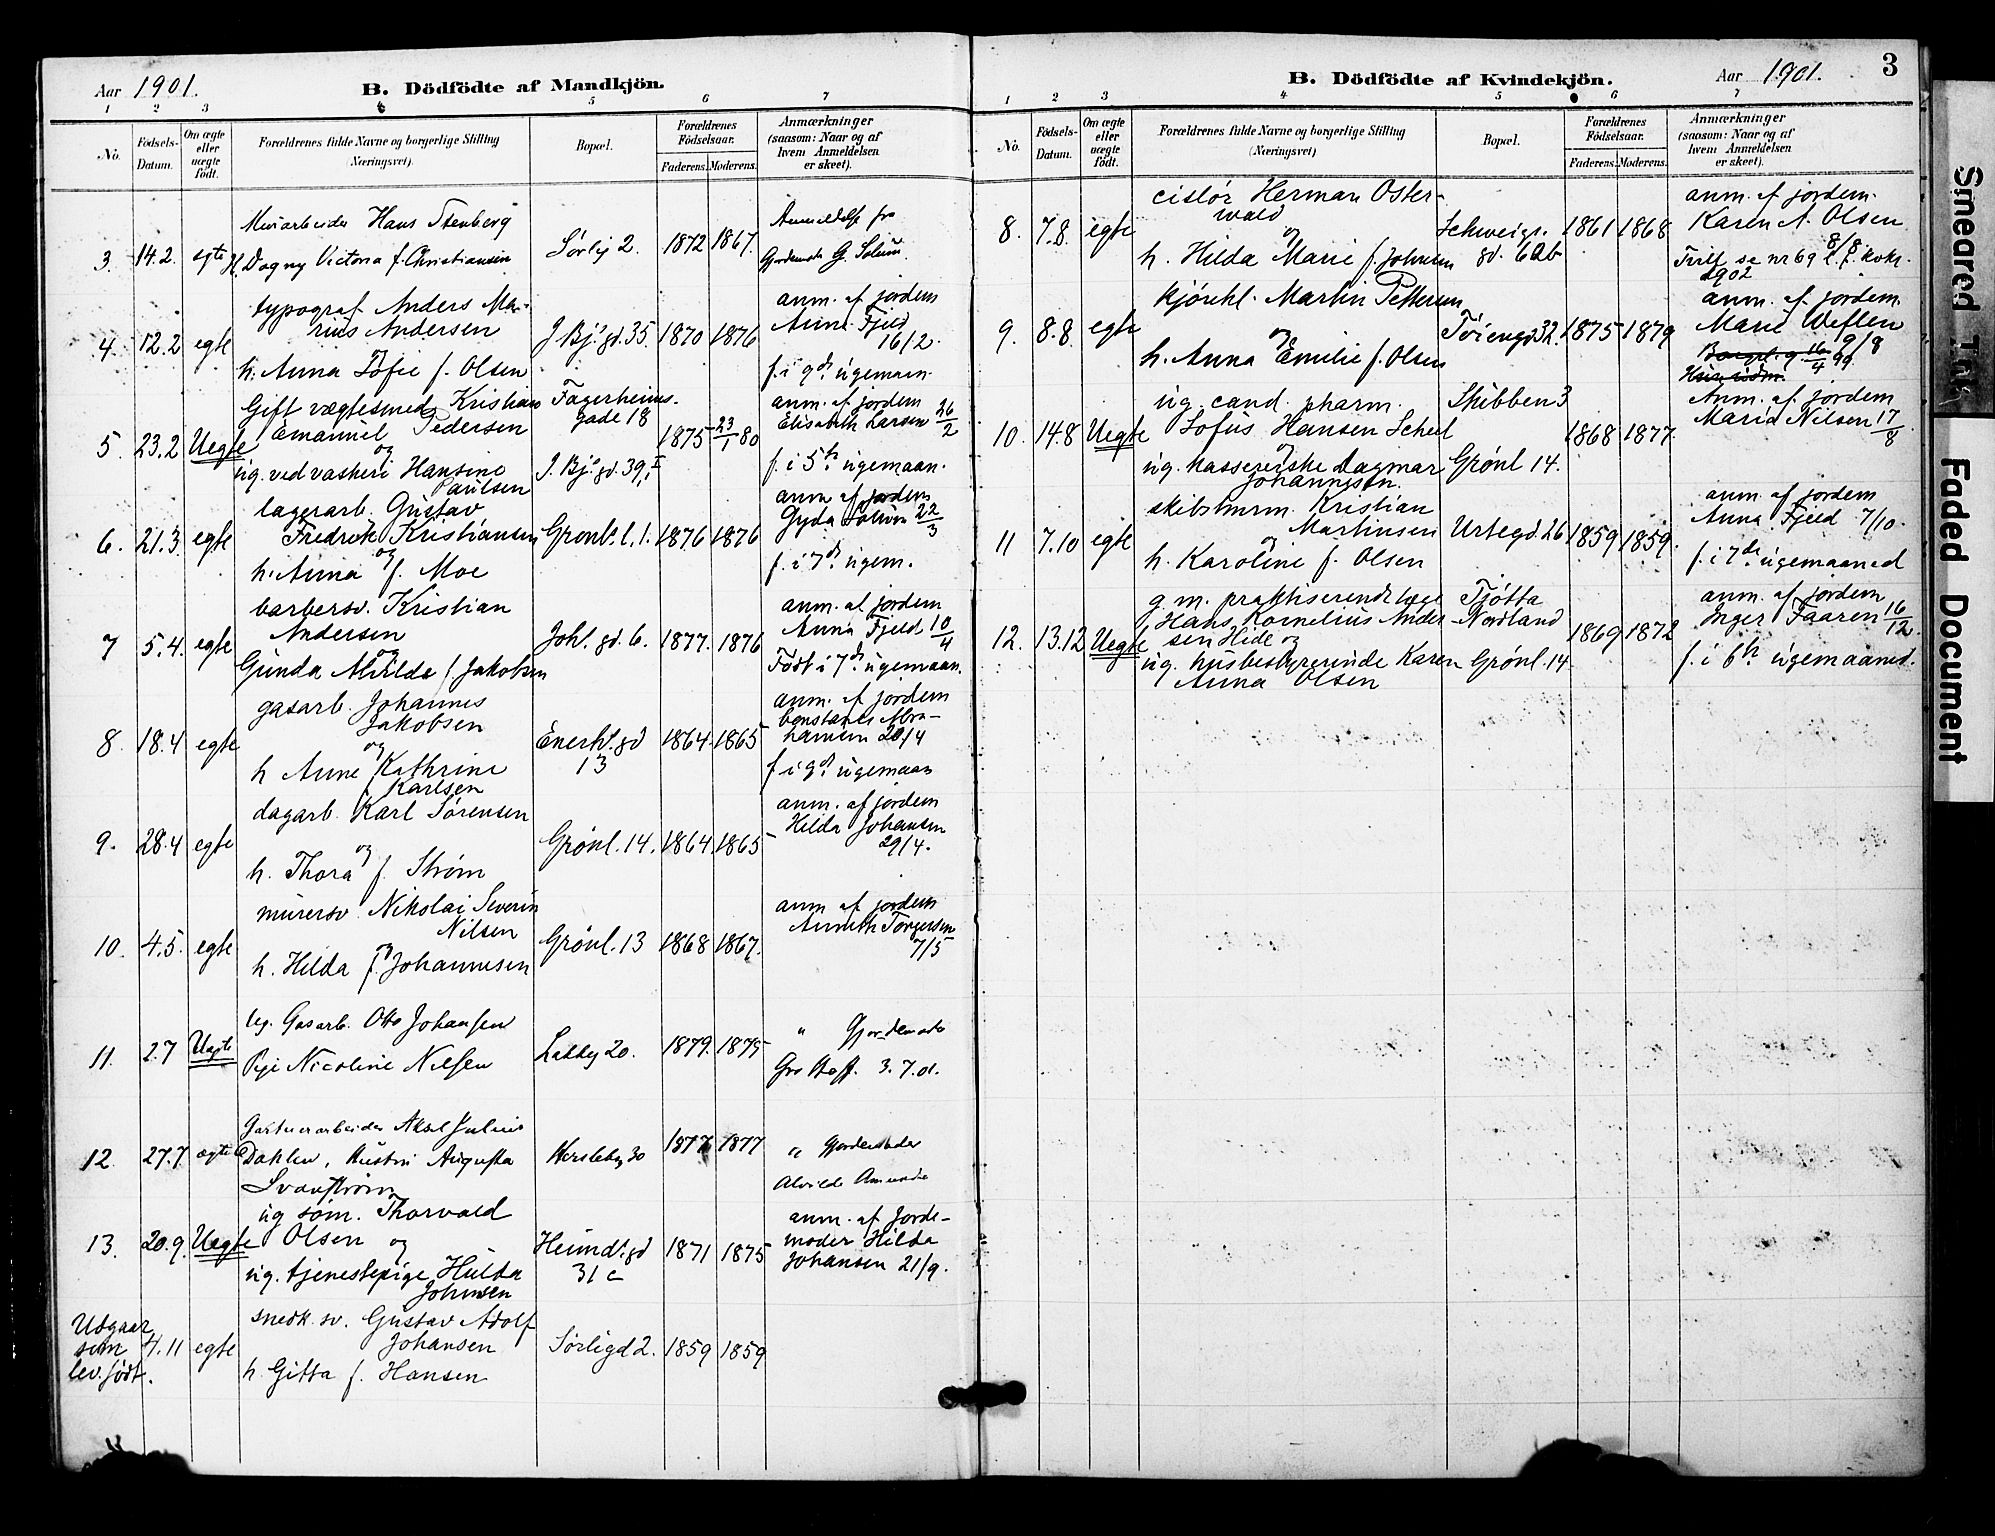 Aar 1901.
B. Dödfödte af Mandkjön.
1 2 3 4 5 6 7
No.
Födsels-Datum.
Om ægte eller uægte födt.
Forældrenes fulde Navne og borgerlige Stilling (Næringsvei).
Bopæl.
Forældrenes Födselsaar.
Faderens. Moderens.
Anmærkninger (saasom: Naar og af hvem Anmeldelsen er skeet).
3. 14.2. egte
Murarbeider Hans Stenberg
H. Dagny Victoria f. Christiansen
Sørlig 2. 1872 1867.
Anmeldelse fra
Gjordemode G. Solum
4 12.2 egte
typograf Anders Ma-
rius Andersen
h. Anna Sofie f. Olsen
J. Bj.s gd. 35. 1870 1876
anm. af jordem
Anna Fjeld
16/2.
f. i 9d. ugemaan.
5 23.2 Uegte
Gift vægtesmed Kristian
Emanuel Pedersen
og
ug. ved vaskeri Hansine
Paulsen
Fagerheims-
gade 18
J. Bj.s gd. 39, I
1875 23/1 80
anm. af jordem
Elisabeth Larsen 26/2
f. i 5te ugemaan.
6. 21.3. egte
lagerarb. Gustav
Fredrik Kristiansen
og
h. Anna f. Moe
Grønl. l. 1. 1876 1876
anm af jordem
Gyda Solum 22/3
f. i 7d. ugem.
7 5.4. egte
barbersv. Kristian
Andersen
og
Gunda Matilde f. Jakobsen
Joh.s gd. 6. 1877. 1876
anm. af jordem
Anna Fjeld 10/4
Födt i 7d. ugemaan.
8. 18.4 egte
gasarb. Johannes
Jakobsen
og
h Anne Kathrine
f. Karlsen
Enerh.s gd
13
1864. 1865
anm. af jordem
Constanse Abra-
hamsen 20/4
f i 9d. ugemaan
9. 28.4 egte
dagarb. Karl Sørensen
og
h. Thora f. Strøm
Grønl. 14. 1864. 1865
anm. af jordem
Hilda Johansen
29/4.
10. 4.5. egte
murersv. Nikolai Severin
Nilsen
og
h. Hilda f. Johannesen
Grønl. 13 1868 1867.
anm af jordem
Anneth Torgersen
7/5
11. 2.7 Uegte
Ug. Gasarb. Otto Johansen
Pige Nicoline Nilsen
Lakkeg 20. 1879. 1875
" Gjordemoder
Gro Staff. 3.7.01.
12. 27.7 ægte
Gartnerarbeider Aksel Julius
Dahlen, Hustru Augusta
Svanstrøm
Herslebg 30 1877 1877
" Gjordemoder
Alvilde Amundsen
13. 20.9. Uegte
ug. søm. Thorvald
Olsen og
ug. tjenestepige Hulda
Johnsen
Heimd.s gd
31 c
1871 1875
anm. af Jorde-
moder Hilda
Johansen 21/9.
Udgaar
som
lev. födt.
4.11 egte
snedk. sv. Gustav Adolf
Johansen
h. Gitta f. Hansen
Sørligd 2. 1859 1859
B. Dödfödte af Kvindekjön.
Aar 1901.
3
1 2 3 4 5 6 7
No.
Födsels-Datum.
Om ægte eller uægte födt.
Forældrenes fulde Navne og borgerlige Stilling (Næringsvei)
Bopæl.
Forældrenes Födselsaar.
Faderens. Moderens.
Anmærkninger (saasom: Naar og af hvem Anmeldelsen er skeet).
8. 7.8. egte
cislør Herman Oster-
wald
og
h. Hilda Marie f. Johnsen
Schweigs.
gd. 62b
1861 1868
anm. af jordem.
Karen A. Olsen
8/8
Tvill se nr 69 l. f. kvkj.
1902
9. 8.8. egte
kjørekl. Martin Pettersen
og
h. Anna Emilie f. Olsen
Tøiengd 32. 1875 1879
anm. af jordem.
Marie Weflen
9/8
10. 14.8 Uegte
ug. cand. pharm.
Sofus Hansen Scheel
og
ug. kassererske Dagmar
Johannesen.
Skibben 3
Grønl 14.
1868 1877.
Anm. af jordem
Maria Nilsen 17/8
11 7.10 egte
skibstmrm. Kristian
Martinsen
og
h. Karoline f. Olsen
Urtegd. 26 1859 1859.
anm. af jordem
Anna Fjeld 7/10.
f. i 7de ugemaaned
12. 13.12 Uegte
g. m. praktiserende læge
Hans Kornelius Ander
sen Hide og
ug. husbestyrerinde Karen
Anna Olsen
Tjøtta
Nordland
Grønl. 14
1869 1872
anm. af jordem
Inger Faaren 16/12.
f. i 6te ugemaaned.
Smeared Ink
Faded Document